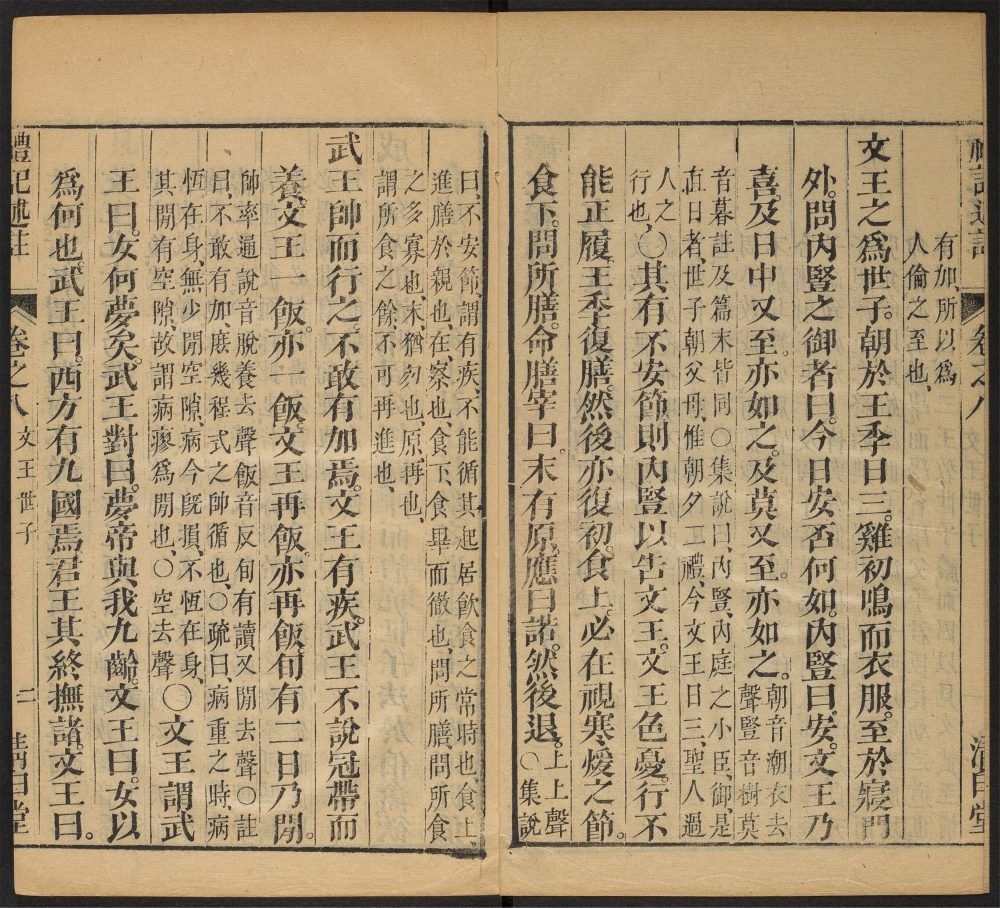 有加所以爲
人倫之至也
文王之爲世子。朝於王季日三。雞初鳴而衣服。至於寢門
外。問內豎之御者曰。今日安否何如。內豎曰。安。文王乃
喜。及日中又至。亦如之。及莫又至。亦如之。朝音潮衣去
聲豎音樹莫
音暮註及篇末皆同○集說曰、內豎、內庭之小臣、御是
直日者、世子朝父母、惟朝夕二禮、今文王日三、聖人過
人之
行也、○其有不安節。則內豎以告文王。文王色憂。行不
能正履。王季復膳。然後亦復初。食上。必在視寒煖之節。
食下。問所膳。命膳宰曰。末有原。應曰諾。然後退。上上聲
○集說
曰、不安節、謂有疾、不能循其起居飲食之常時也、食上、
進膳於親也、在、察也、食下、食畢而徹也、問所膳、問所食
之多寡也、末、猶勿也、原、再也、
謂所食之餘、不可再進也、
武王帥而行之。不敢有加焉。文王有疾。武王不說冠帶而
養。文王一飯。亦一飯。文王再飯。亦再飯。旬有二日乃閒。
帥率通說音脫養去聲飯音反旬有讀又閒去聲○註
曰、不敢有加、庶幾程式之帥循也、○疏曰、病重之時、病
恆在身、無少閒空隙、病今旣損、不恆在身、
其閒有空隙、故謂病瘳爲閒也、○空去聲○文王謂武
王曰。女何夢矣。武王對曰。夢帝與我九齡。文王曰。女以
爲何也。武王曰。西方有九國焉。君王其終撫諸。文王曰。
禮記述註
卷之八
文王世子
二